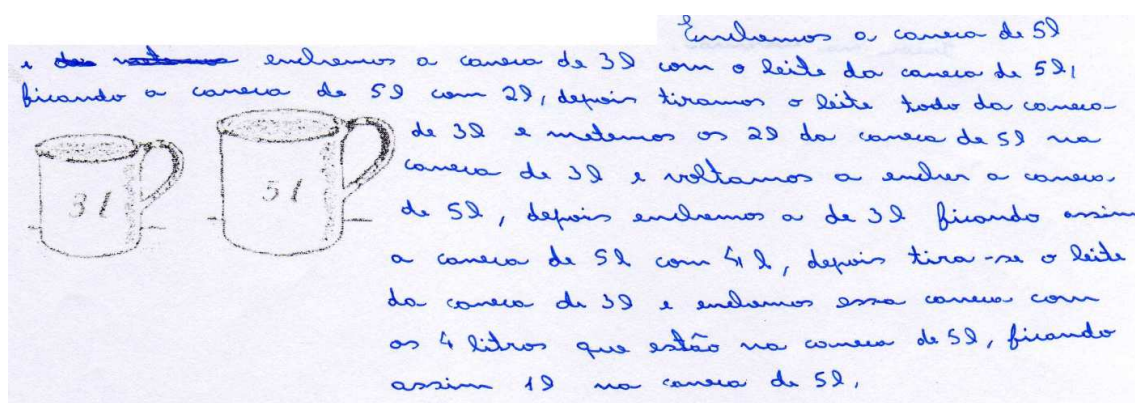 Enchemos a caneca de 5l
e enchemos a caneca de 3l com o leite da caneca de 5l,
ficando a caneca de 5l com 2l, depois tiramos o leite todo da caneca
de 3l e metemos os 2l da caneca de 5l na
caneca de 3l e voltamos a encher a caneca
de 5l, depois enchemos a de 3l ficando assim
a caneca de 5l com 4l, depois tira-se o leite
da caneca de 3l e enchemos essa caneca com
os 4 litros que estão na caneca de 5l, ficando
assim 1l na caneca de 5l.
3l
5l